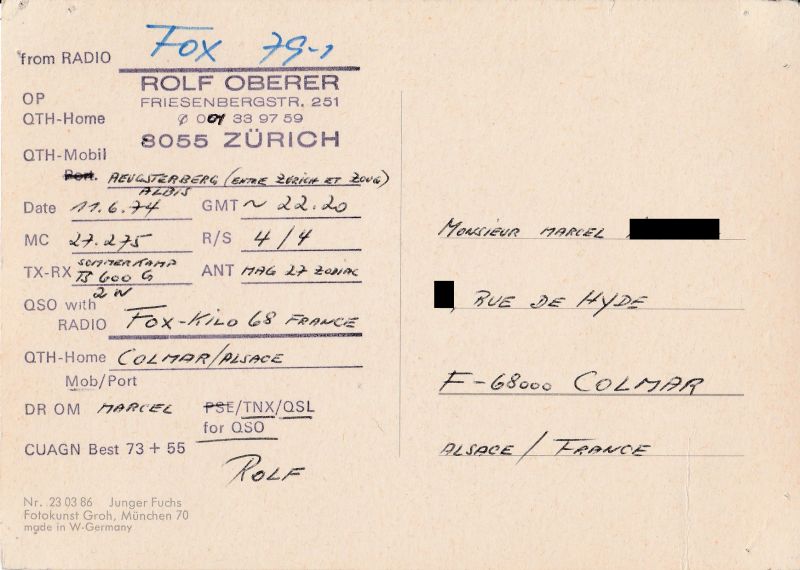 from RADIO Fox 79-1
ROLF OBERER
OP FRIESENBERGSTR. 251
QTH-Home ✆ 001 33 97 59
8055 ZÜRICH
QTH-Mobil
Port. AEUGSTERBERG (ENTRE ZÜRICH ET ZOUG)
ALBIS
Date 11.6.74 GMT ~ 22.20
MC 27.275 R/S 4/4
SOMMERKAMP
TX-RX TS 600 G ANT MAG 27 ZODIAC
2W
QSO with
RADIO FOX-KILO 68 FRANCE
QTH-Home COLMAR/ALSACE
Mob/Port
DR OM MARCEL PSE/TNX/QSL
for QSO
CUAGN Best 73 + 55
ROLF
Nr. 23 03 86 Junger Fuchs
Fotokunst Groh, München 70
mgde in W-Germany
MONSIEUR MARCEL
, RUE DE HYDE
F-68000 COLMAR
ALSACE / FRANCE